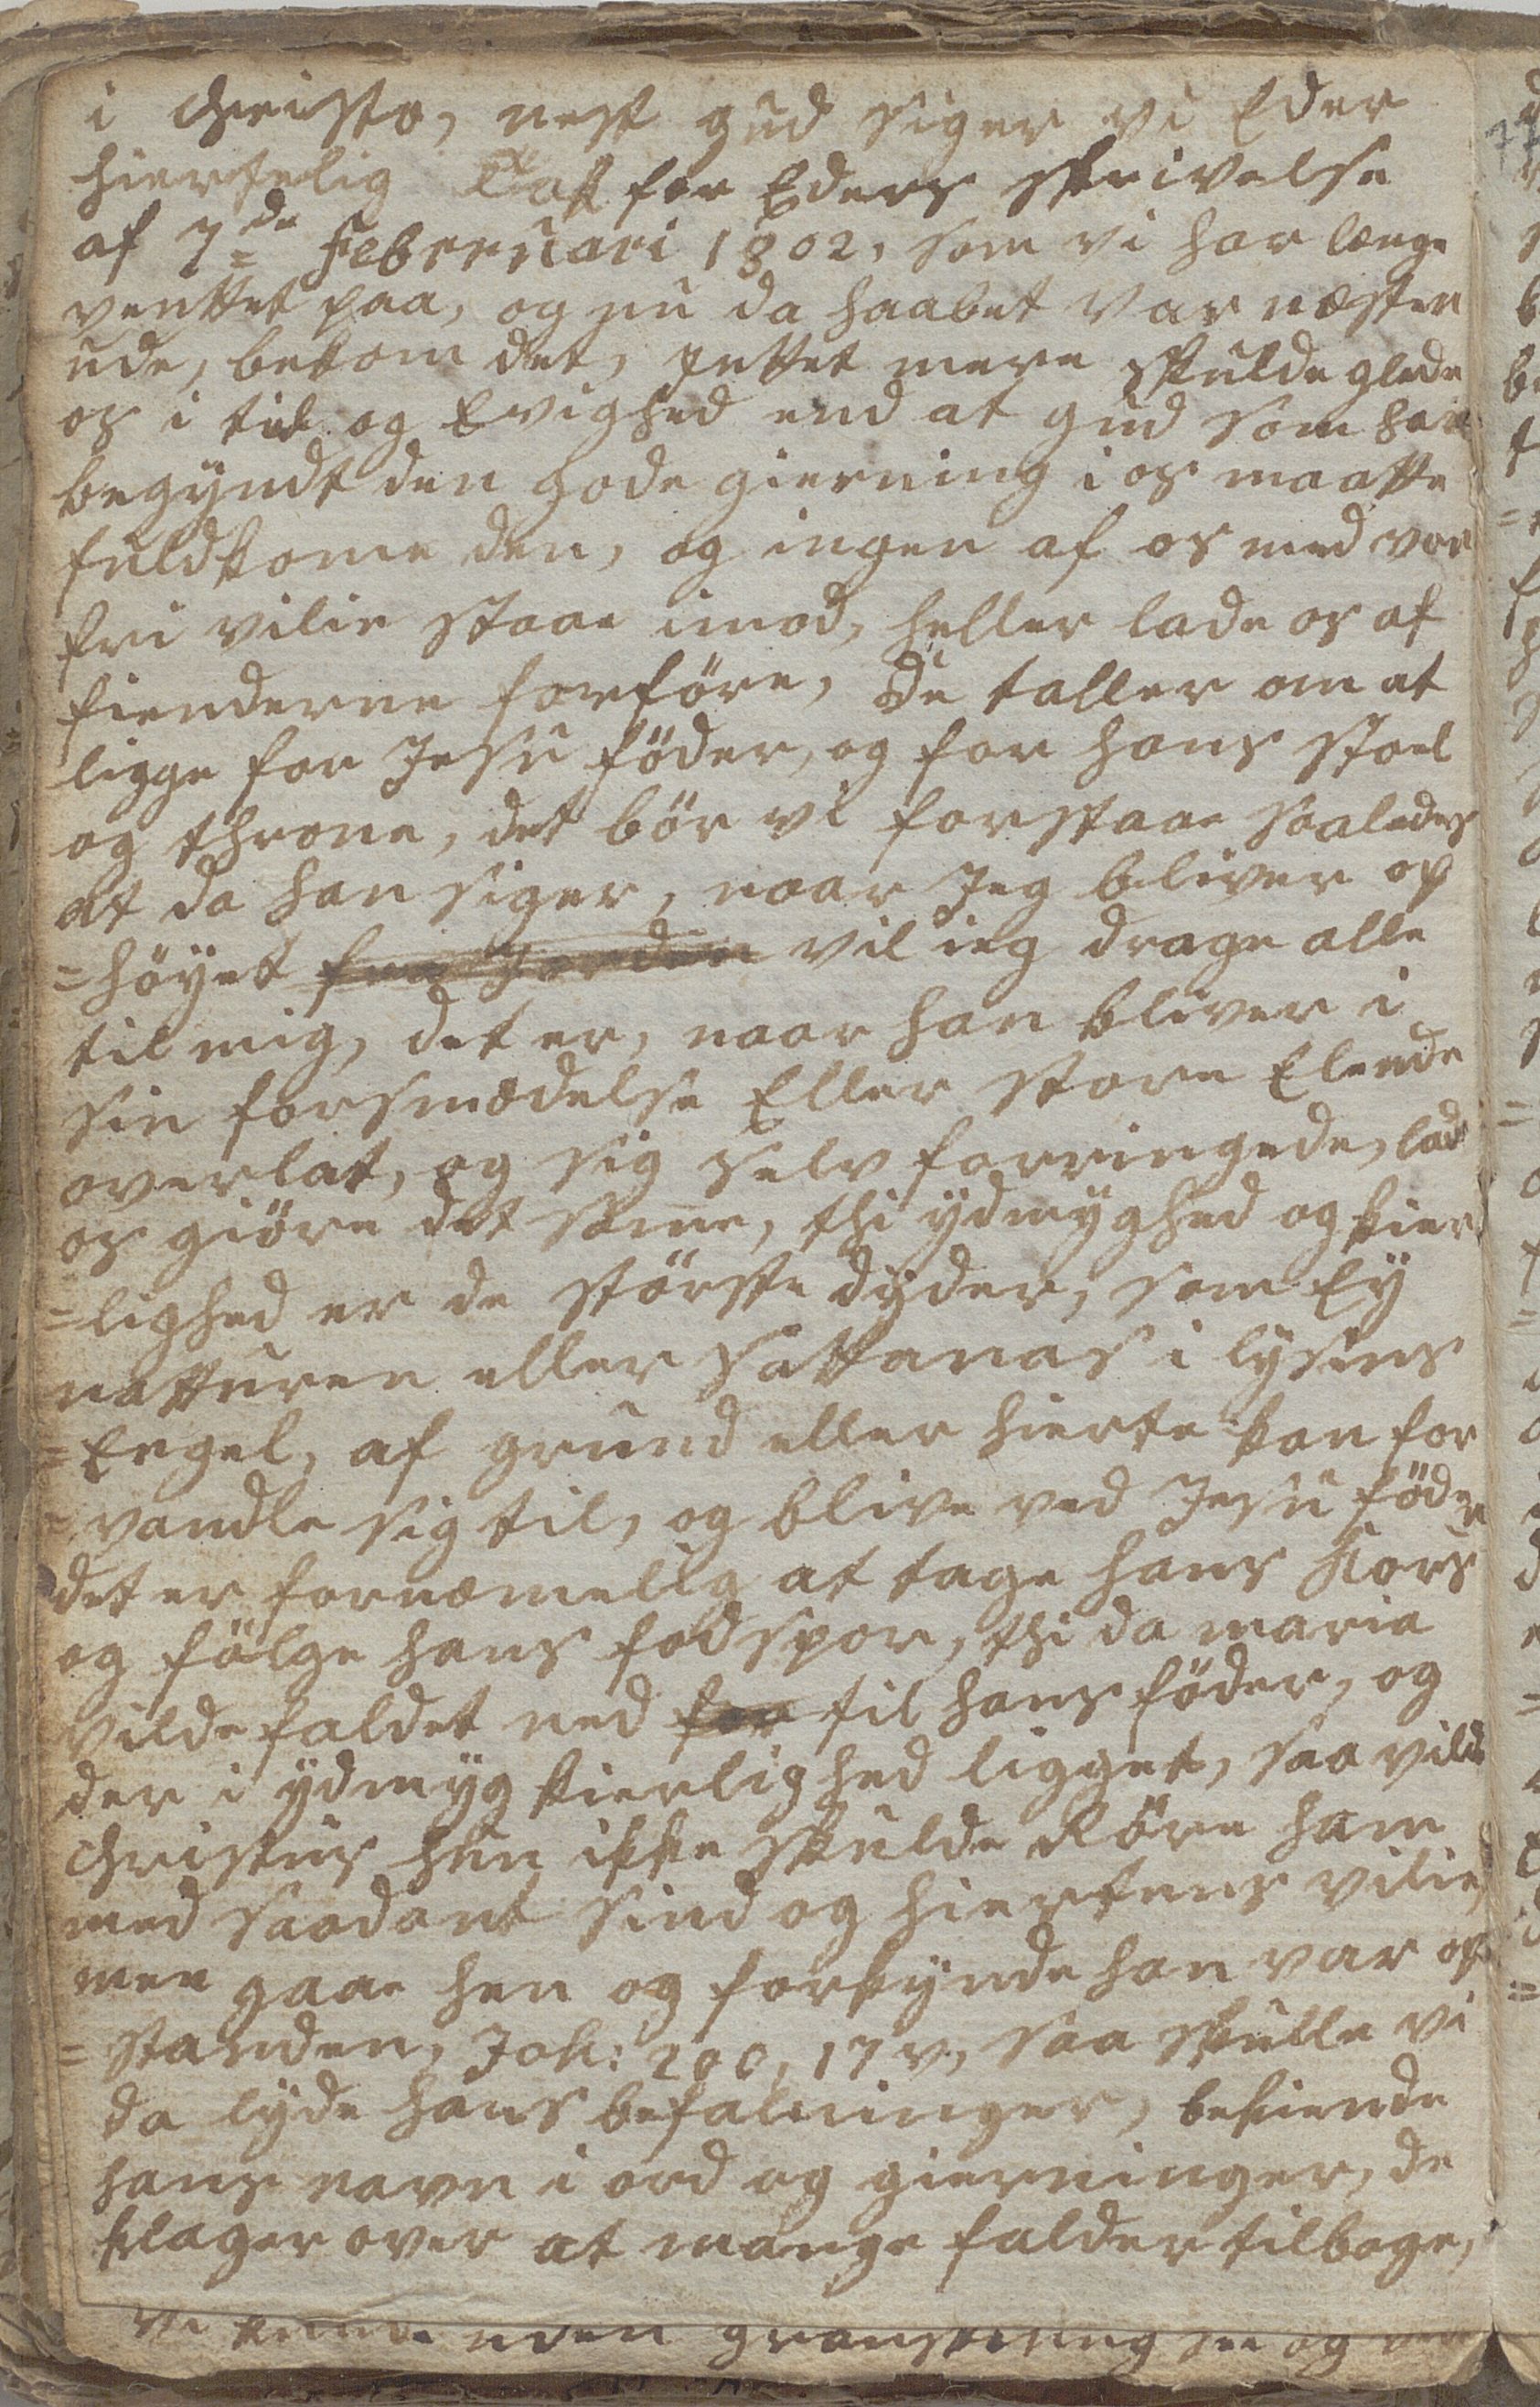 i Christo, nest gud siger vi Eder
hiertelig Tak for Eders skrivelse
af 7=de Februari 1802, som vi har længe
venttet paa, og nu da haabet var næsten
ude, bekom det, inttet mere skulde glæde
os i tid og Evighed end at gud som har
begyndt den gode gierning i os maatte
fuldkome den, og ingen af os med vor
fri vilie staae imod, heller lade os af
fienderne forföre, Du taller om at
ligge for Jesu föder, og for hans stoel
og throne, det bör vi forstaae saaledes
at da han siger, naar Jeg bliver op
=höyet fra Jorden vil ieg drage alle
til mig, det er, naar han bliver i
sin forsmædelse Eller store Elende
overlat, og sig selv forringede, lad
os giöre det same, thi ydmyghed og kier
=lighed er de störste dyder, som Ey
natturen eller Sattanas i lysens
=Engel, af grund eller hierte kan for
=vandle sig til, og blive ved Jesu föder
det er fornæmelig at tage hans Kors
og fölge hans fodspor, thi da maria
vilde faldet ned for til hans föder, og
der i ydmyg kierlighed ligget, saa vilde
Christus hun ikke skulde Röre ham
med saadant sind og hiertens vilie,
men gaae hen og forkynde han var op
=standen, Joh: 20 c, 17 v, saa skulle vi
da lyde hans befalninger, bekiende
hans navn i ord og gierninger, de
klager over at mange falder tilbage,
vi kunde uden granskning see og